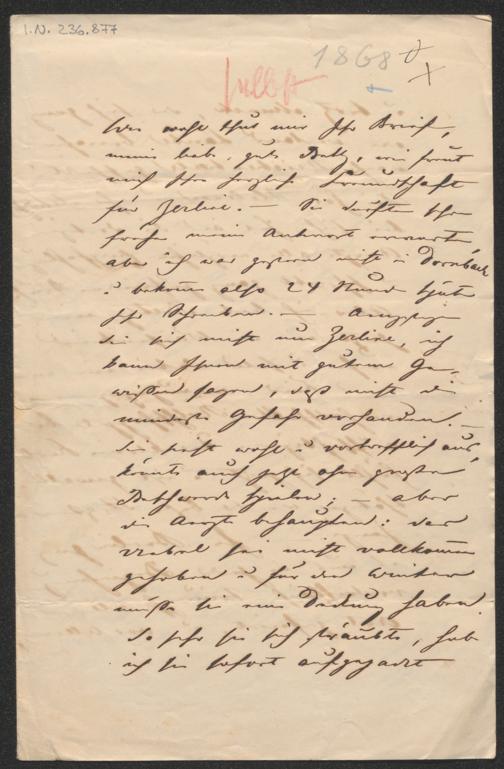 I.N. 236.877
1868
Wie wohl thut mir Ihr Brief,
meine liebe, gute Betty, wie freut
mich Ihre herzliche Freundschaft
für Zerline. — Sie durften schon
früher meine Antwort erwarten,
aber ich war gestern nicht in Dornbach
u bekam also 24 Stund später
Ihr Schreiben. —
Sie sich nicht um Zerline, ich
kann Ihnen mit gutem Ge-
wissen sagen, daß nicht die
mindeste Gefahr vorhanden. —
Sie sieht wohl u vortrefflich aus,
könnte auch jetzt ohne große
Beschwerde spielen; — aber
die Aerzte behaupten: das
Uebel sei nicht vollkommen
gehoben u für den Winter
müsse sie eine haben.
So sehr sie sich sträubte, habe
ich sie sofort